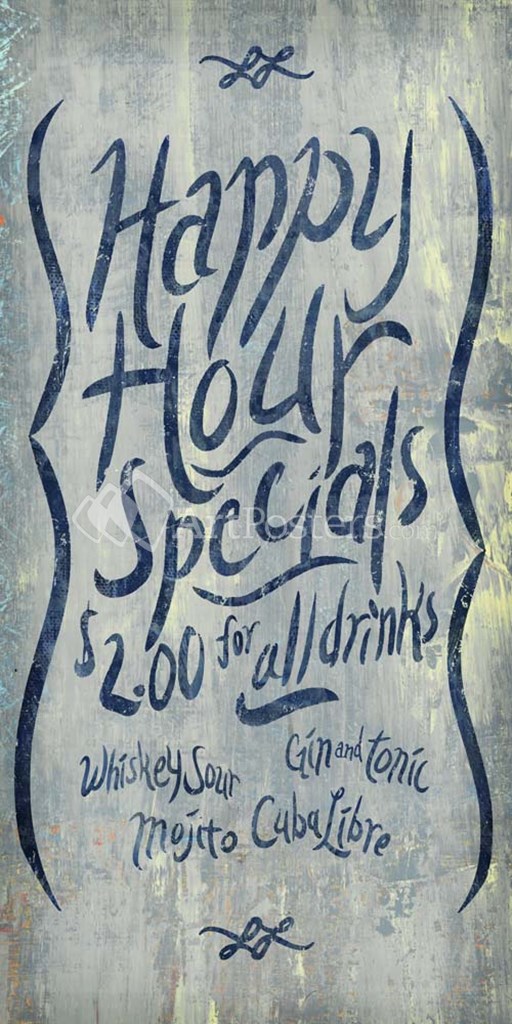 Happy
Hour
Specials
$2.00 for all drinks
Whiskey Sour Gin and Tonic
Mojito Cuba Libre
ArtPosters.com